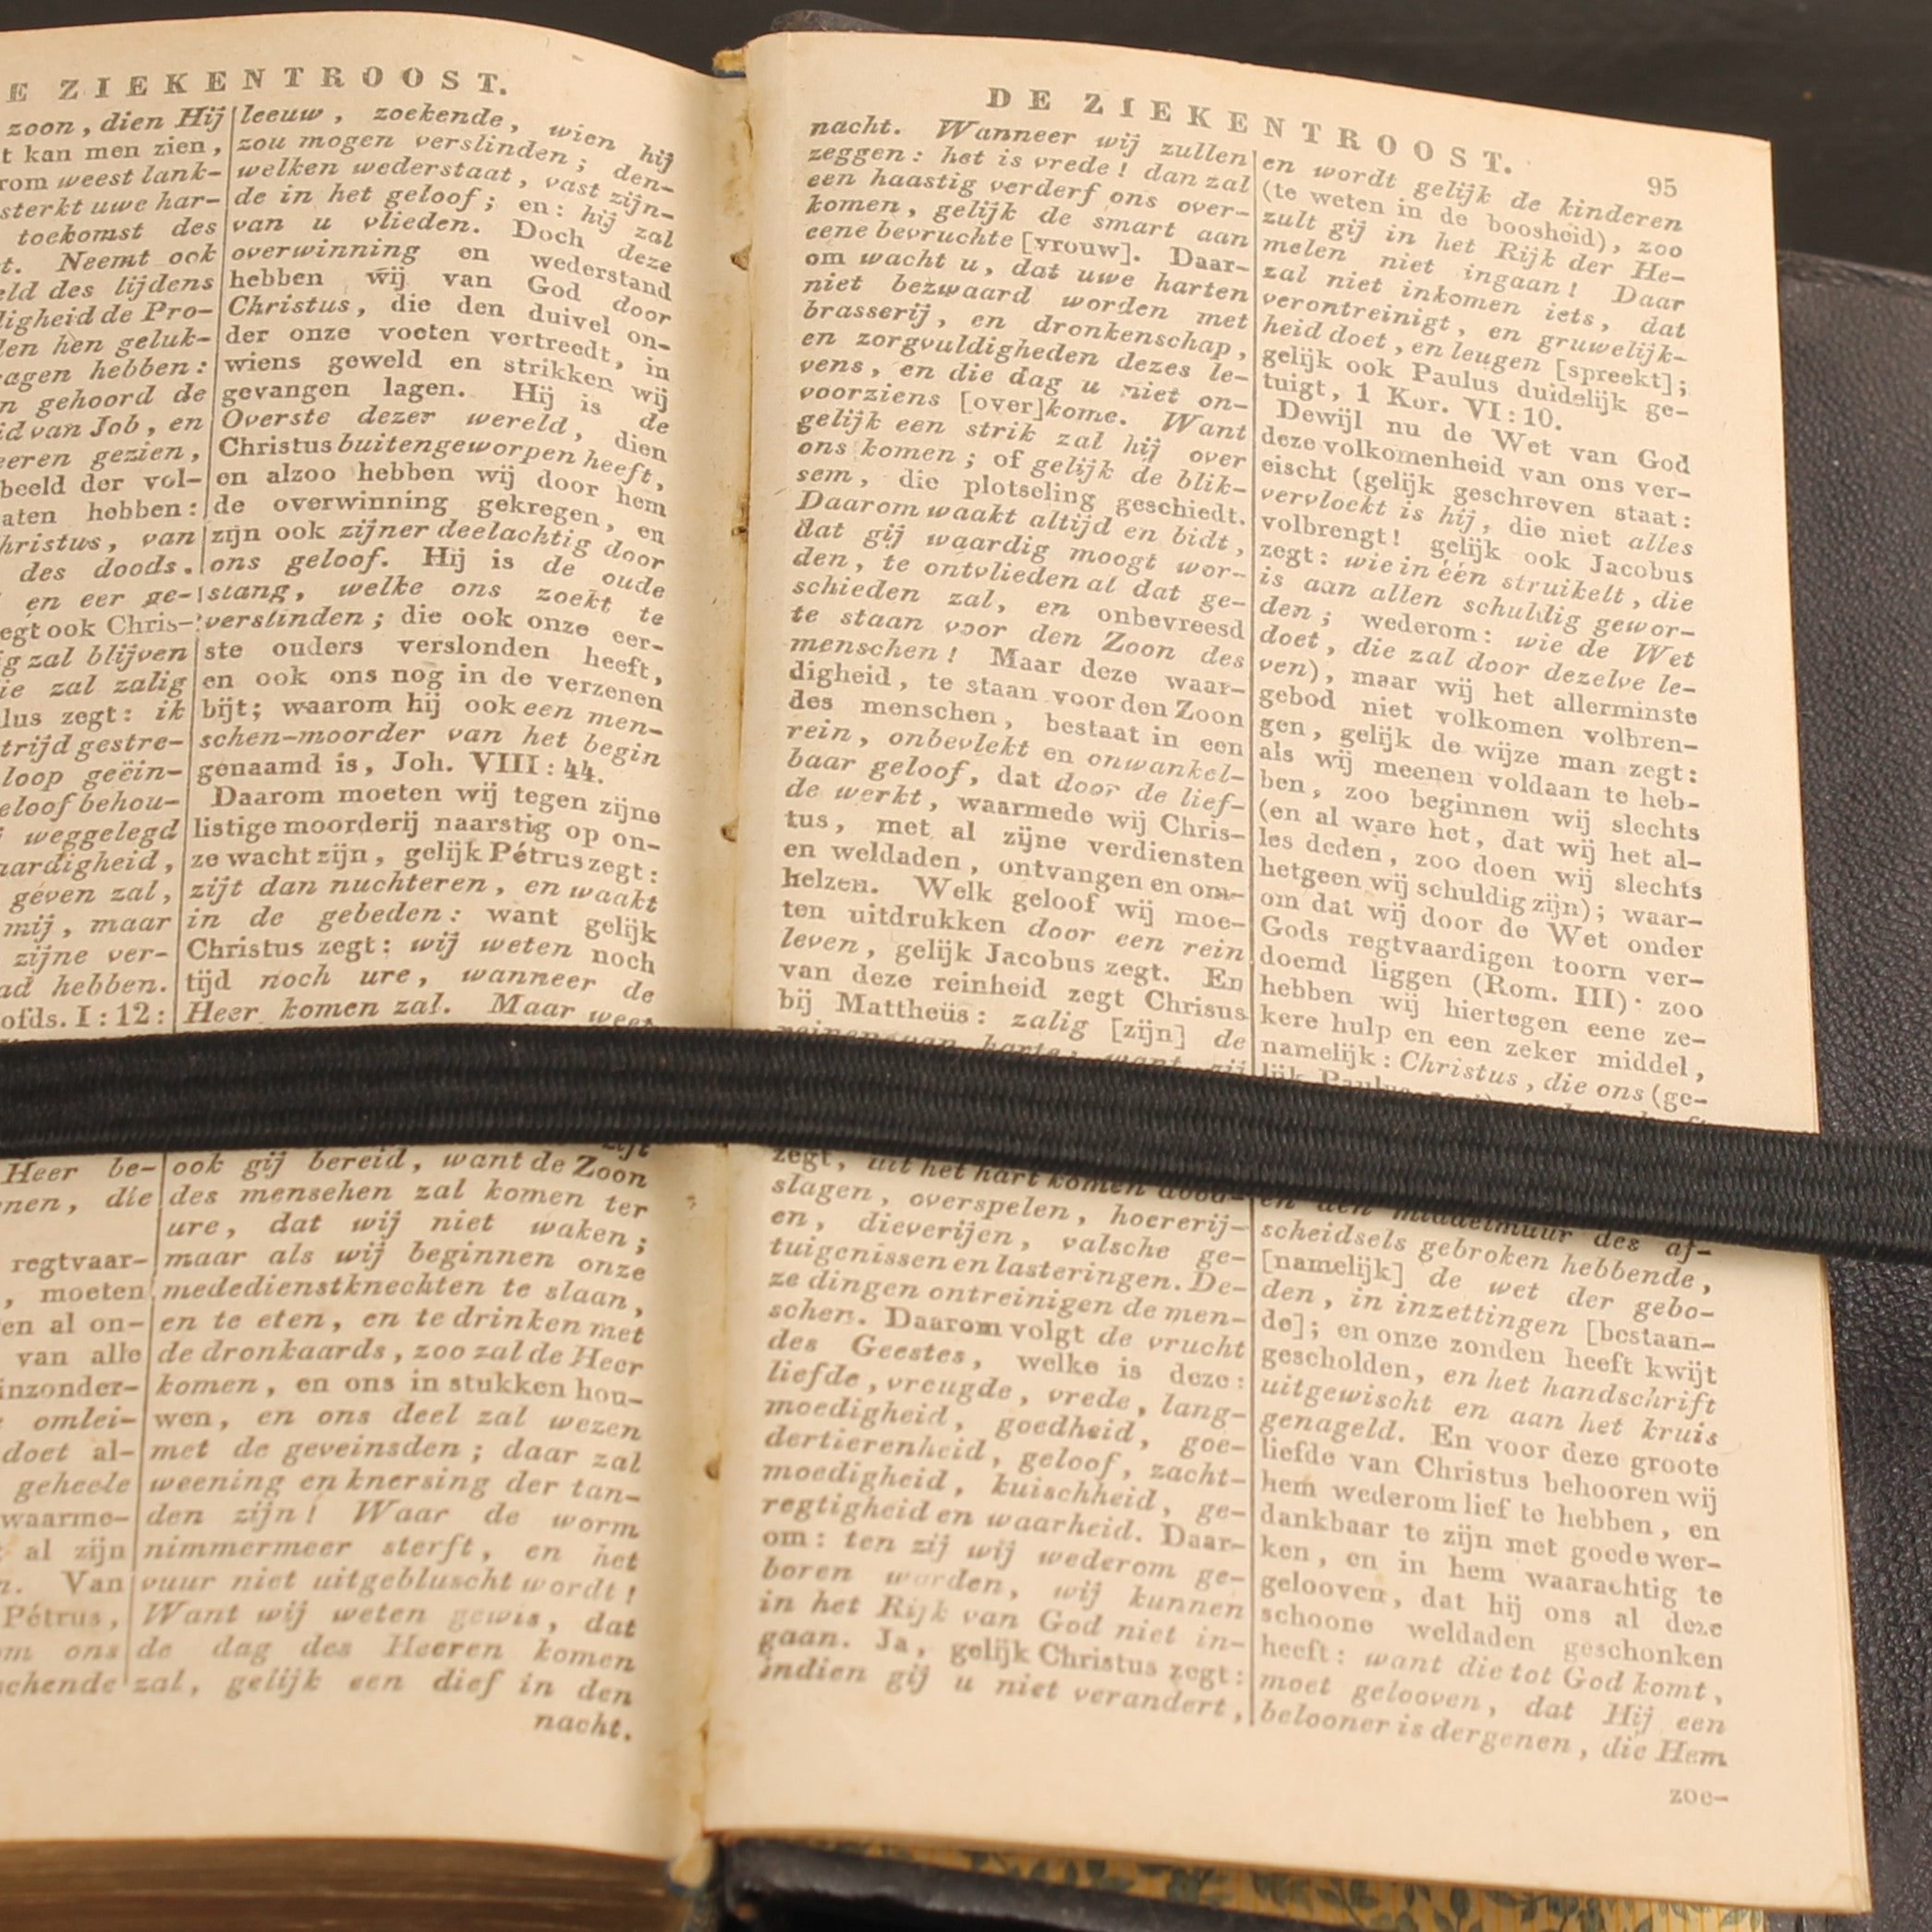 E ZIEKENTROOST.
zoon, dien Hij
t kan men zien,
rom weest lank-
sterkt uwe har-
toekomst des
t. Neemt ook
eld des lijdens
ligheid de Pro-
len hen geluk-
ragen hebben:
n gehoord de
id van Job, en
eeren gezien,
beeld der vol-
aten hebben:
hristus, van
des doods.
en eer ge-
egt ook Chris-
g zal blijven
ie zal zalig
lus zegt: ik
trijd gestre-
loop geëin-
eloof behou-
weggelegd
aardigheid,
geven zal,
mij, maar
zijne ver-
ad hebben.
ofds. I: 12:
Heer be-
nen, die
regtvaar-
, moeten
en al on-
van alle
inzonder-
omlei-
doet al-
geheele
waarme-
al zijn
n. Van
Pétrus,
om ons
schende
leeuw, zoekende, wien hij
zou mogen verslinden; den-
welken wederstaat, vast zijn-
de in het geloof; en: hij zal
van u vlieden. Doch deze
overwinning en wederstand
hebben wij van God door
Christus, die den duivel on-
der onze voeten vertreedt, in
wiens geweld en strikken wij
gevangen lagen. Hij is de
Overste dezer wereld, dien
Christus buitengeworpen heeft,
en alzoo hebben wij door hem
de overwinning gekregen, en
zijn ook zijner deelachtig door
ons geloof. Hij is de oude
slang, welke ons zoekt te
verslinden; die ook onze eer-
ste ouders verslonden heeft,
en ook ons nog in de verzenen
bijt; waarom hij ook een men-
schen-moorder van het begin
genaamd is, Joh. VIII: 44.
Daarom moeten wij tegen zijne
listige moorderij naarstig op on-
ze wacht zijn, gelijk Pétrus zegt:
zijt dan nuchteren, en waakt
in de gebeden: want gelijk
Christus zegt: wij weten noch
tijd noch ure, wanneer de
Heer komen zal. Maar weest
zijt
ook gij bereid, want de Zoon
des menschen zal komen ter
ure, dat wij niet waken;
maar als wij beginnen onze
mededienstknechten te slaan,
en te eten, en te drinken met
de dronkaards, zoo zal de Heer
komen, en ons in stukken hou-
wen, en ons deel zal wezen
met de geveinsden; daar zal
weening en knersing der tan-
den zijn! Waar de worm
nimmermeer sterft, en het
vuur niet uitgebluscht wordt!
Want wij weten gewis, dat
de dag des Heeren komen
zal, gelijk een dief in den
nacht.
DE ZIEKENTROOST.
95
nacht. Wanneer wij zullen
zeggen: het is vrede! dan zal
een haastig verderf ons over-
komen, gelijk de smart aan
eene bevruchte [vrouw]. Daar-
om wacht u, dat uwe harten
niet bezwaard worden met
brasserij, en dronkenschap,
en zorgvuldigheden dezes le-
vens, en die dag u niet on-
voorziens [over]kome. Want
gelijk een strik zal hij over
ons komen; of gelijk de blik-
sem, die plotseling geschiedt.
Daarom waakt altijd en bidt,
dat gij waardig moogt wor-
den, te ontvlieden al dat ge-
schieden zal, en onbevreesd
te staan voor den Zoon des
menschen! Maar deze waar-
digheid, te staan voor den Zoon
des menschen, bestaat in een
rein, onbevlekt en onwankel-
baar geloof, dat door de lief-
de werkt, waarmede wij Chris-
tus, met al zijne verdiensten
en weldaden, ontvangen en om-
helzen. Welk geloof wij moe-
ten uitdrukken door een rein
leven, gelijk Jacobus zegt. En
van deze reinheid zegt Chrisus
bij Mattheüs: zalig [zijn] de
reinen van harte; want zij
zegt, uit het hart komen dood-
slagen, overspelen, hoererij-
en, dieverijen, valsche ge-
tuigenissen en lasteringen. De-
ze dingen ontreinigen de men-
schen. Daarom volgt de vrucht
des Geestes, welke is deze:
liefde, vreugde, vrede, lang-
moedigheid, goedheid, goe-
dertierenheid, geloof, zacht-
moedigheid, kuischheid, ge-
regtigheid en waarheid. Daar-
om: ten zij wij wederom ge-
boren worden, wij kunnen
in het Rijk van God niet in-
gaan. Ja, gelijk Christus zegt:
indien gij u niet verandert,
en wordt gelijk de kinderen
(te weten in de boosheid), zoo
zult gij in het Rijk der He-
melen niet ingaan! Daar
zal niet inkomen iets, dat
verontreinigt, en gruwelijk-
heid doet, en leugen [spreekt];
gelijk ook Paulus duidelijk ge-
tuigt, 1 Kor. VI: 10.
Dewijl nu de Wet van God
deze volkomenheid van ons ver-
eischt (gelijk geschreven staat:
vervloekt is hij, die niet alles
volbrengt! gelijk ook Jacobus
zegt: wie in één struikelt, die
is aan allen schuldig gewor-
den; wederom: wie de Wet
doet, die zal door dezelve le-
ven), maar wij het allerminste
gebod niet volkomen volbren-
gen, gelijk de wijze man zegt:
als wij meenen voldaan te heb-
ben, zoo beginnen wij slechts
(en al ware het, dat wij het al-
les deden, zoo doen wij slechts
hetgeen wij schuldig zijn); waar-
om dat wij door de Wet onder
Gods regtvaardigen toorn ver-
doemd liggen (Rom. III): zoo
hebben wij hiertegen eene ze-
kere hulp en een zeker middel,
namelijk: Christus, die ons (ge-
lijk Paulus
en den middelmuur des af-
scheidsels gebroken hebbende,
[namelijk] de wet der gebo-
den, in inzettingen [bestaan-
de]; en onze zonden heeft kwijt
gescholden, en het handschrift
uitgewischt en aan het kruis
genageld. En voor deze groote
liefde van Christus behooren wij
hem wederom lief te hebben, en
dankbaar te zijn met goede wer-
ken, en in hem waarachtig te
gelooven, dat hij ons al deze
schoone weldaden geschonken
heeft: want die tot God komt,
moet gelooven, dat Hij een
belooner is dergenen, die Hem
zoe-